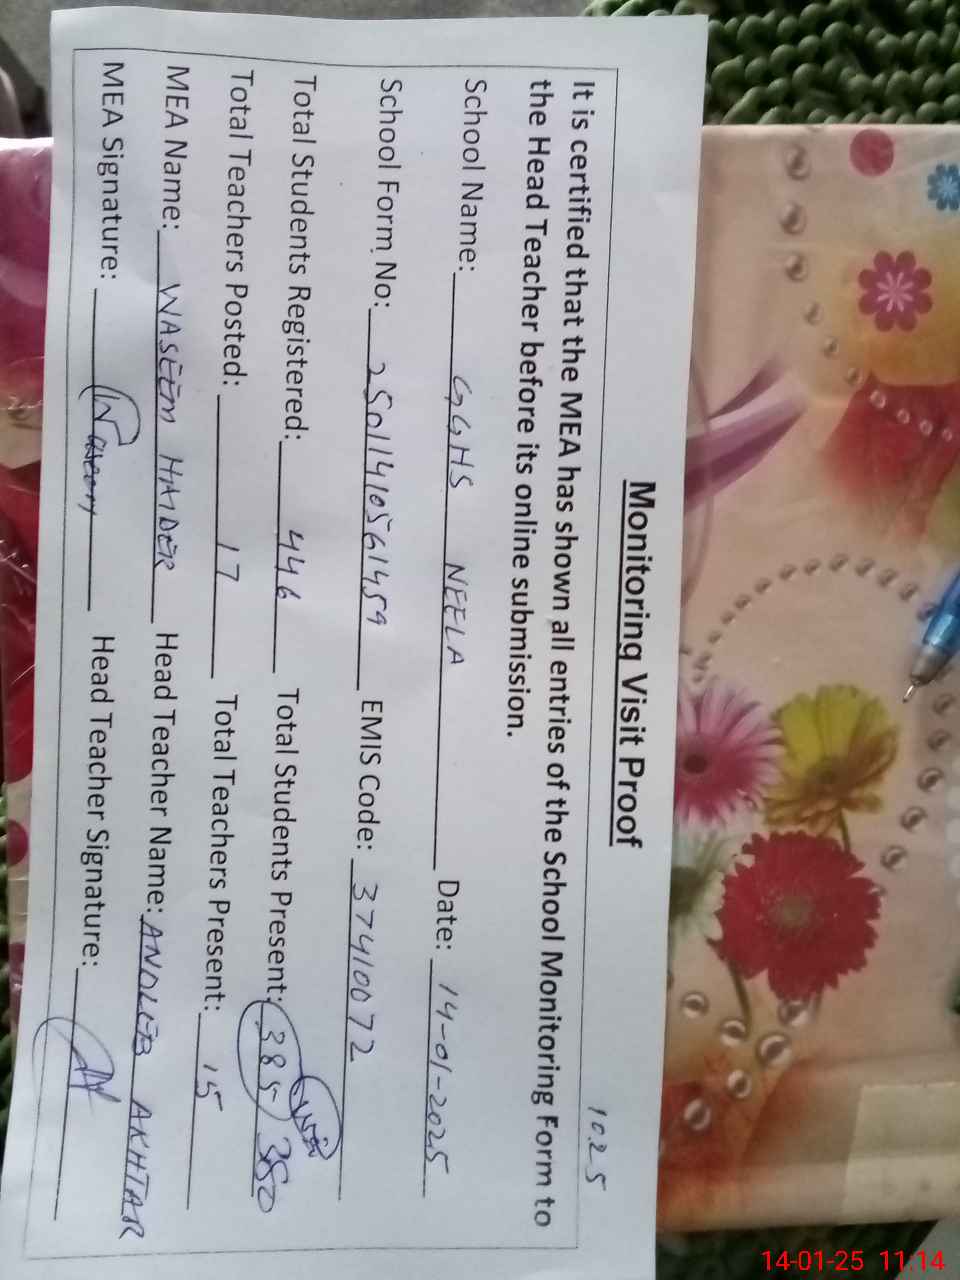 10.25
Monitoring Visit Proof
It is certified that the MEA has shown all entries of the School Monitoring Form to
the Head Teacher before its online submission.
School Name: GGHS NEELA Date: 14-01-2025
School Form No: 25011410561459 EMIS Code: 37410072
Total Students Registered: 446 Total Students Present: 385 380
Total Teachers Posted: 17 Total Teachers Present: 15
MEA Name: WASEEM HAIDER Head Teacher Name: ANDLEB AKHTAR
MEA Signature: Waseem Head Teacher Signature:
14-01-25 11:14